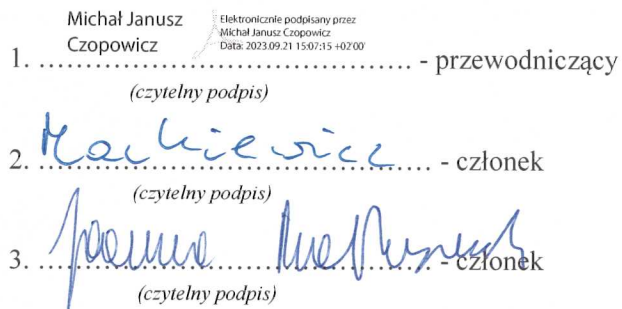 Michał Janusz Czopowicz
Elektronicznie podpisany przez
Michał Janusz Czopowicz
Data: 2023.09.21 15:07:15 +02'00'
1. ........................................ - przewodniczący
(czytelny podpis)
2. Mackiewicz - członek
(czytelny podpis)
3. Joanna - członek
(czytelny podpis)